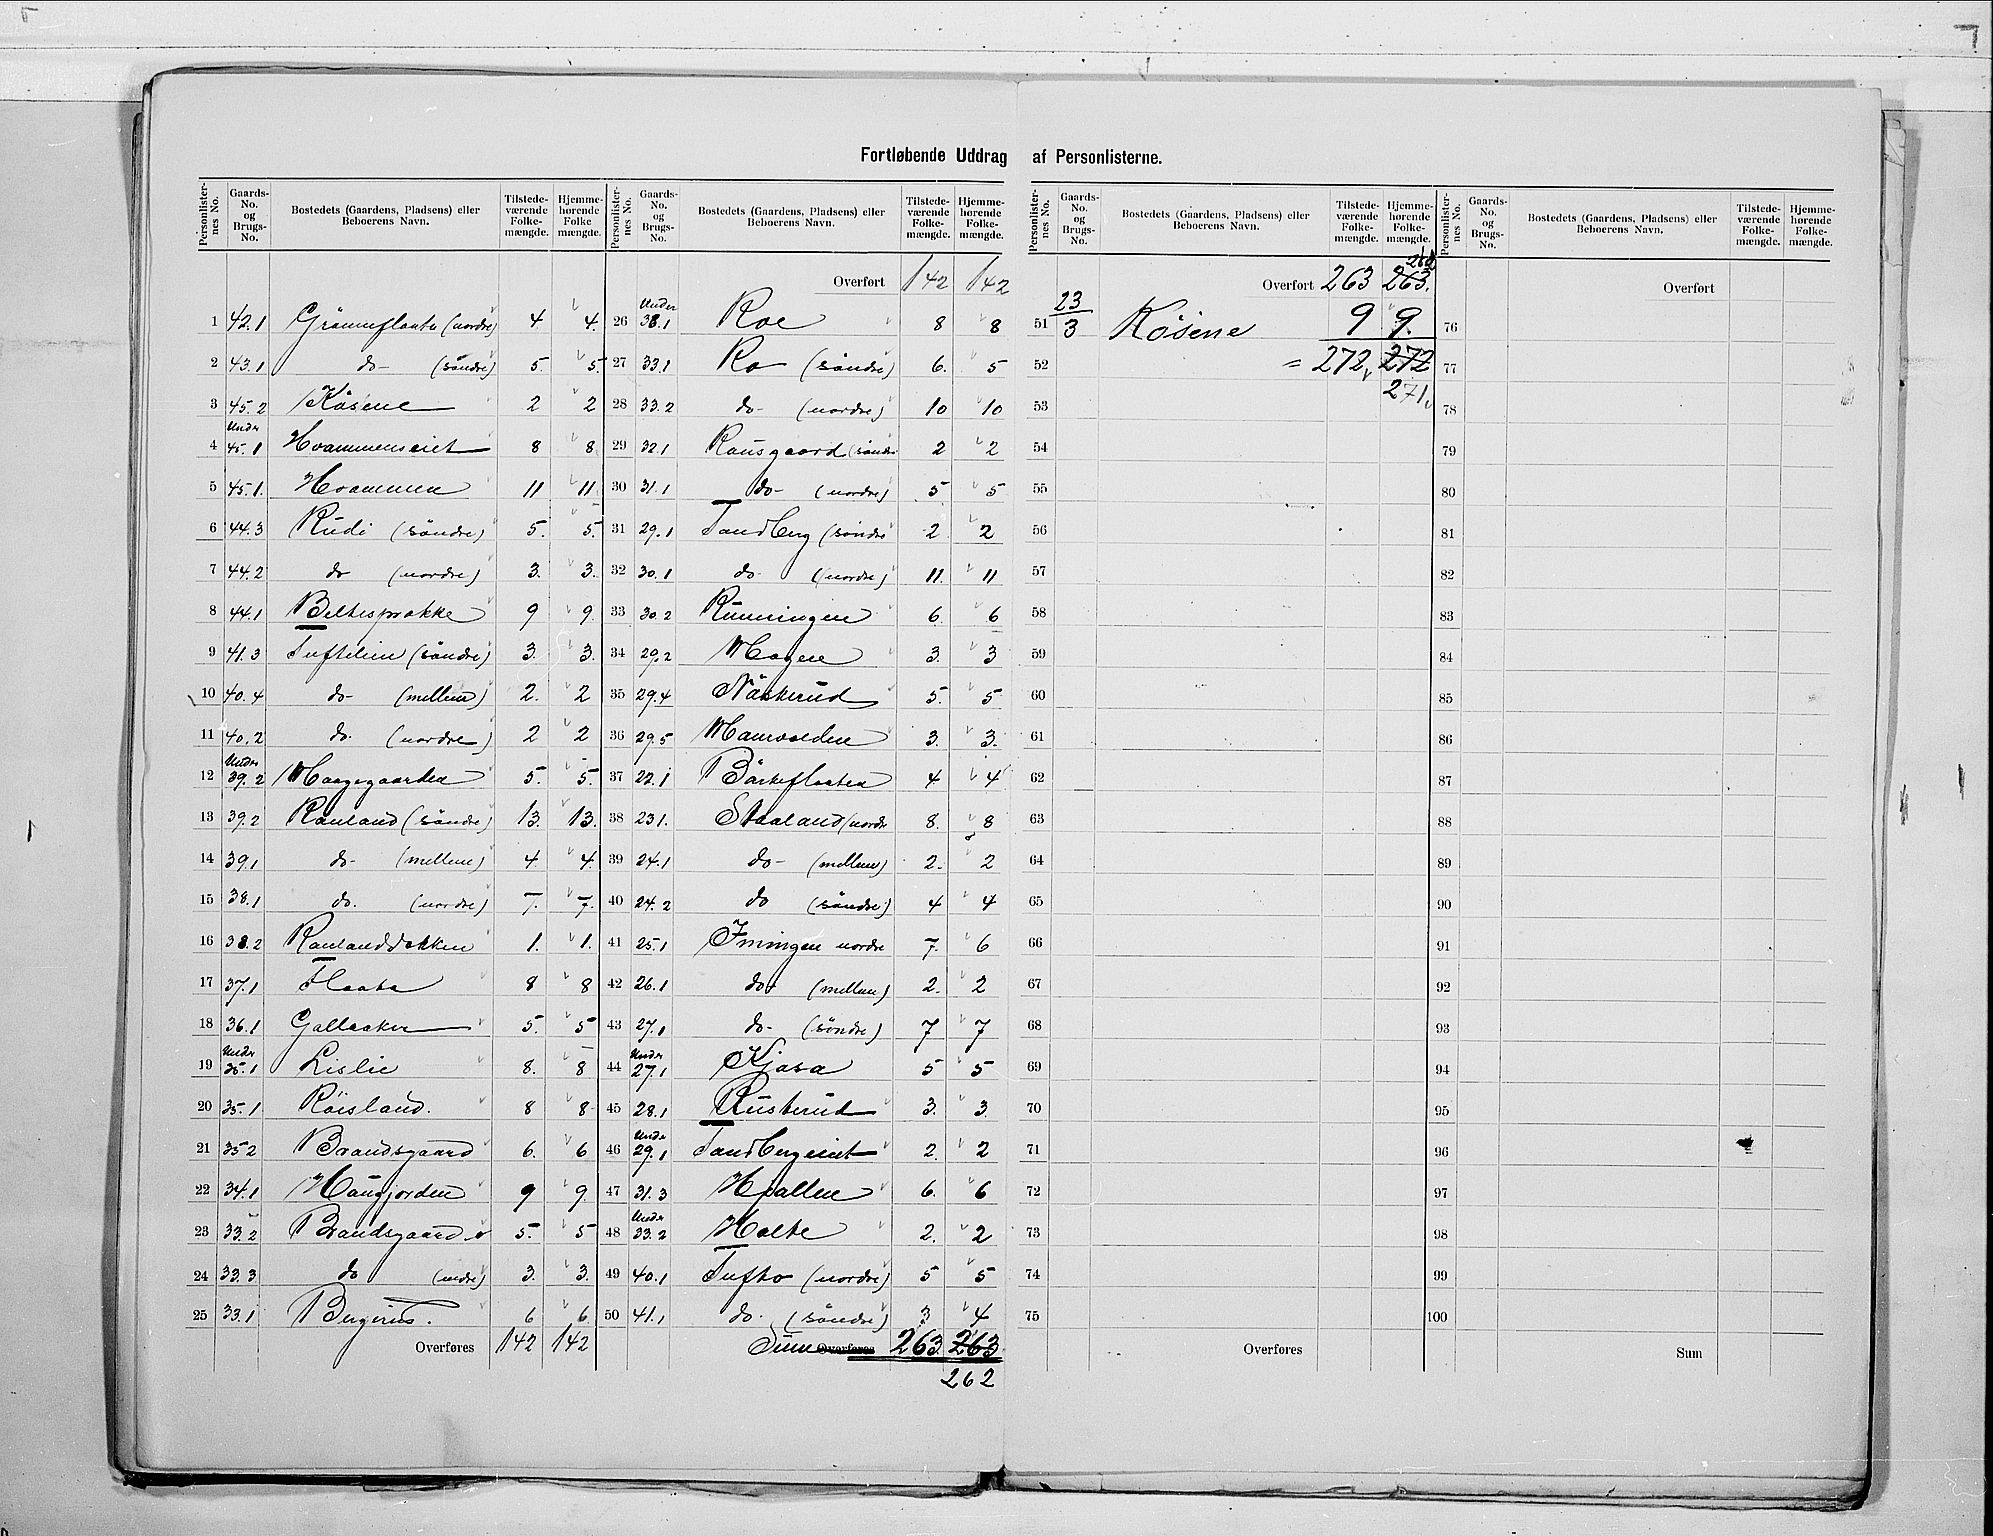 Fortløbende Uddrag af Personlisterne.
Personlister-nes No. Gaards-No. og Brugs-No. Bostedets (Gaardens, Pladsens) eller Beboerens Navn. Tilstede-værende Folke-mængde. Hjemme-hørende Folke mængde.
1 42.1 Grönneflaata (nordre) 4 4.
2 43.1 do- (söndre) 5. 5.
3 45.2 Kåsene 2 2
4 Under 45.1 Hvammenseiet 8 8
5 45.1. Hvammen 11 11
6 44.3 Rudi (söndre) 5. 5.
7 44.2 do (nordre) 3. 3.
8 44.1 Beltesprække 9 9.
9 41.3 Tuftelien (söndre) 3. 3.
10 40.4 do- (mellem) 2. 2
11 40.2 do. (nordre) 2 2
12 Under 39.2 Haagegaarden 5. 5.
13 39.2 Rauland (söndre) 13. 13.
14 39.1 do- (mellem) 4. 4.
15 38.1 do. (nordre) 7. 7.
16 38.2 Raulanddokken 1. 1.
17 37.1 Flaata 8 8
18 36.1 Golleaker 5. 5
19 Under 35.1 Lislie 8. 8
20 35.1 Röisland. 8 8
21 35.2 Brandsgaard 6. 6
22 34.1 Haugjorden 9 9.
23 33.2 Brandsgaard 5. 5
24 33.3 do (indre) 3. 3.
25 33.1 Bergerud. 6 6
Overføres 142 142
Personlister-nes No. Gaards-No. og Brugs-No. Bostedets (Gaardens, Pladsens) eller Beboerens Navn. Tilstede-værende Folke-mængde. Hjemme-hørende Folke-mængde.
Overført 142 142
26 Under 33.1 Roe 8 8
27 33.1 Ro (söndre) 6. 5
28 33.2 do- (nordre) 10 10
29 32.1 Rausgaard (söndre 2 2
30 31.1 do- (nordre) 5 5
31 29.1 Tandberg (söndre 2 2
32 30.1 do- (nordre) 11. 11
33 30.2 Runningen 6. 6
34 29.2 Mogen 3. 3
35 29.4 Nöskerud 5. 5.
36 29.5 Maurvolden 3. 3.
37 22.1 Börkeflaaten 4 4
38 23.1. Staaland (nordre 8. 8
39 24.1 do- (mellem) 2. 2
40 24.2 do (söndre) 4 4
41 25.1 Imingen nordre 7. 6
42 26.1 do- (mellem) 2. 2
43 27.1 do- (söndre) 7 7
44 Under 27.1 Kjosa 5 5
45 28.1 Rusterud 3. 3
46 Under 29.1 Tandbergeiet 2. 2
47 31.3 Hjallen 6. 6
48 Under 33.2 Holte 2. 2
49 40.1 Tufto (nordre) 5 5
50 41.1 do. (söndre) 3 4
Sum Overføres 263 263
262
Personlister-nes No. Gaards-No. og Brugs-No. Bostedets (Gaardens, Pladsens) eller Beboerens Navn. Tilstede-værende Folke-mængde. Hjemme-hørende Folke-mængde.
262
Overført 263 263.
51 23/3 Kösene 9 9.
52 = 272 272
271
53
54
55
56
57
58
59
60
61
62
63
64
65
66
67
68
69
70
71
72
73
74
75
Overføres
Personlister-nes No. Gaards-No. og Brugs-No. Bostedets (Gaardens, Pladsens) eller Beboerens Navn. Tilstede-værende Folke-mængde. Hjemme-hørende Folke-mængde.
Overført
76
77
78
79
80
81
82
83
84
85
86
87
88
89
90
91
92
93
94
95
96
97
98
99
100
Sum